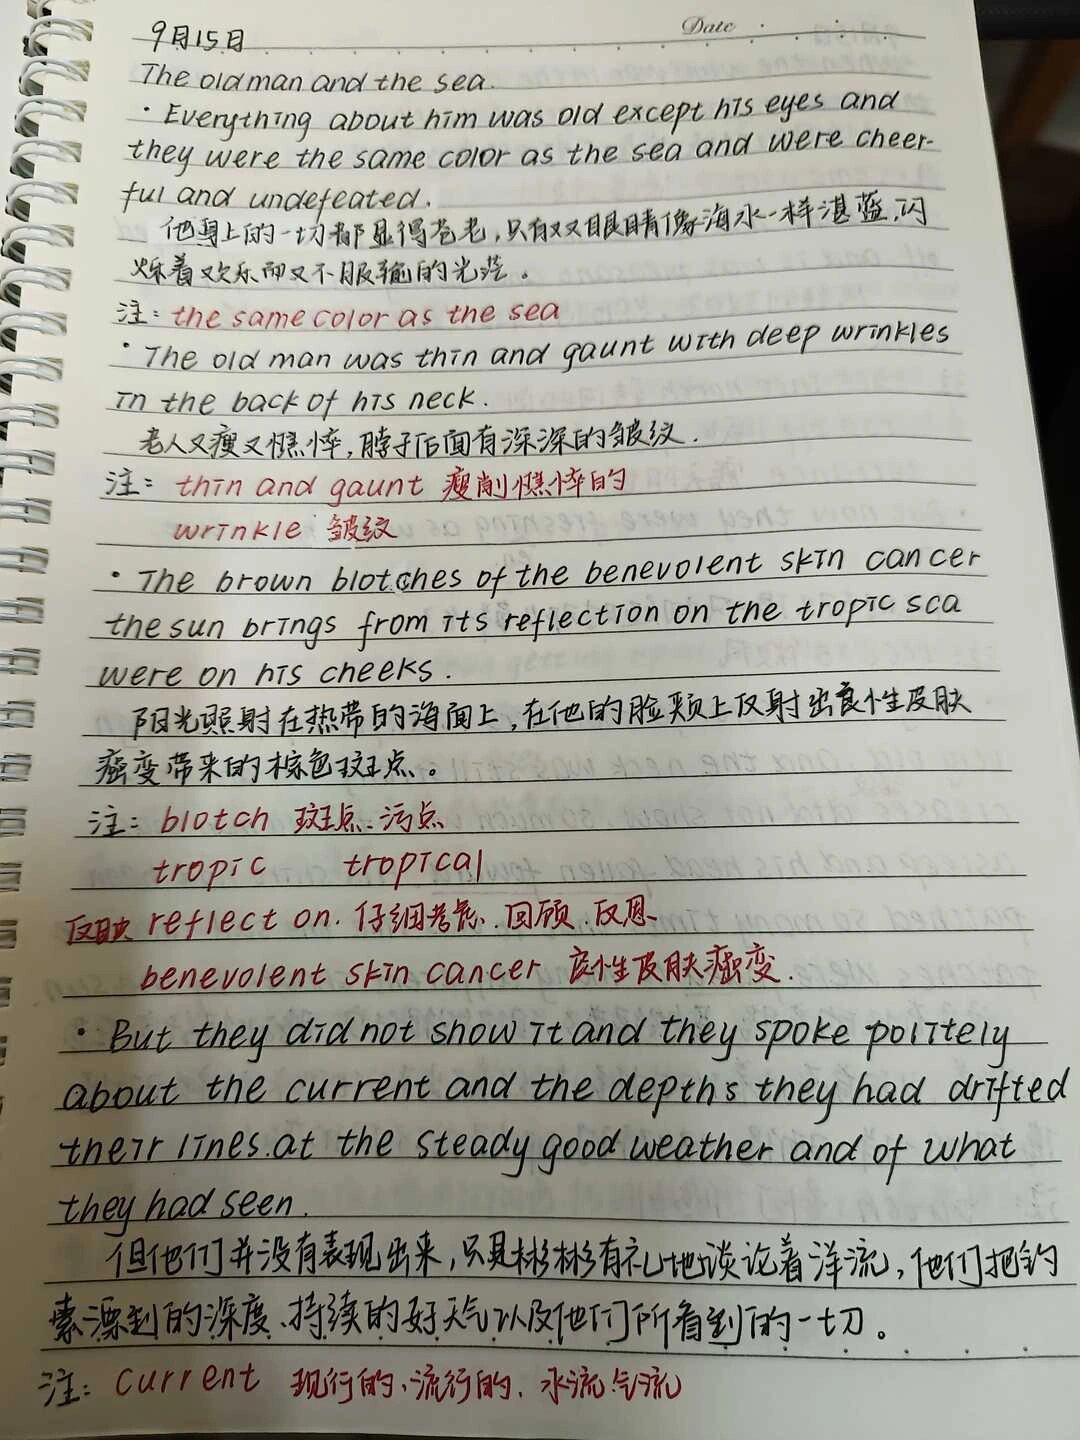 Date
9月15日
The old man and the sea.
· Everything about him was old except his eyes and
they were the same color as the sea and were cheer-
ful and undefeated.
他身上的一切都显得苍老,只有双眼睛像海水一样湛蓝,闪
烁着欢乐而又不服输的光茫。
注: the same color as the sea
· The old man was thin and gaunt with deep wrinkles
in the back of his neck.
老人又瘦又憔悴,脖子后面有深深的皱纹.
注: thin and gaunt 瘦削憔悴的
wrinkle 皱纹
· The brown blotches of the benevolent skin cancer
the sun brings from its reflection on the tropic sea
were on his cheeks.
阳光照射在热带的海面上,在他的脸颊上反射出良性皮肤
癌变带来的棕色斑点。
注: blotch 斑点、污点
tropic tropical
反映 reflection. 仔细考虑、回顾、反思
benevolent skin cancer 良性皮肤癌变.
· But they did not show it and they spoke politely
about the current and the depths they had drifted
their lines at the steady good weather and of what
they had seen.
但他们并没有表现出来,只是彬彬有礼地谈论着洋流,他们把钓
索漂到的深度、持续的好天气以及他们所看到的一切。
注: current 现行的、流行的、水流气流